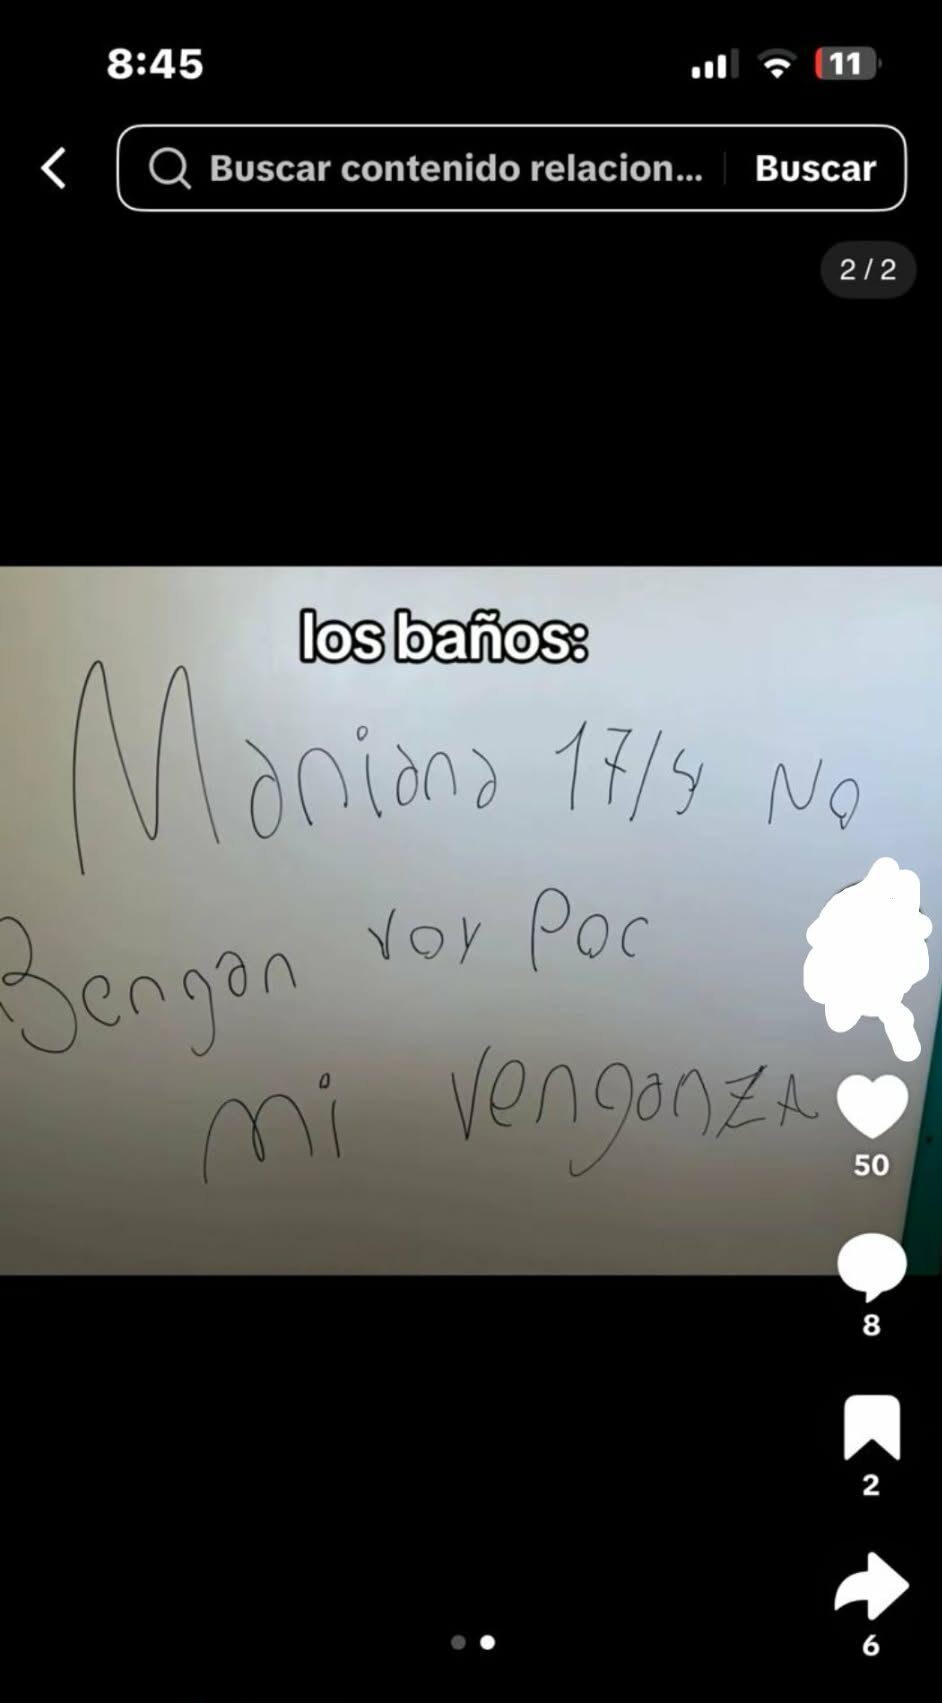 8:45
11
Buscar contenido relacion... Buscar
2 / 2
los baños:
Maniana 17/4 No
Bengan voy Por
mi venganzA
50
8
2
6